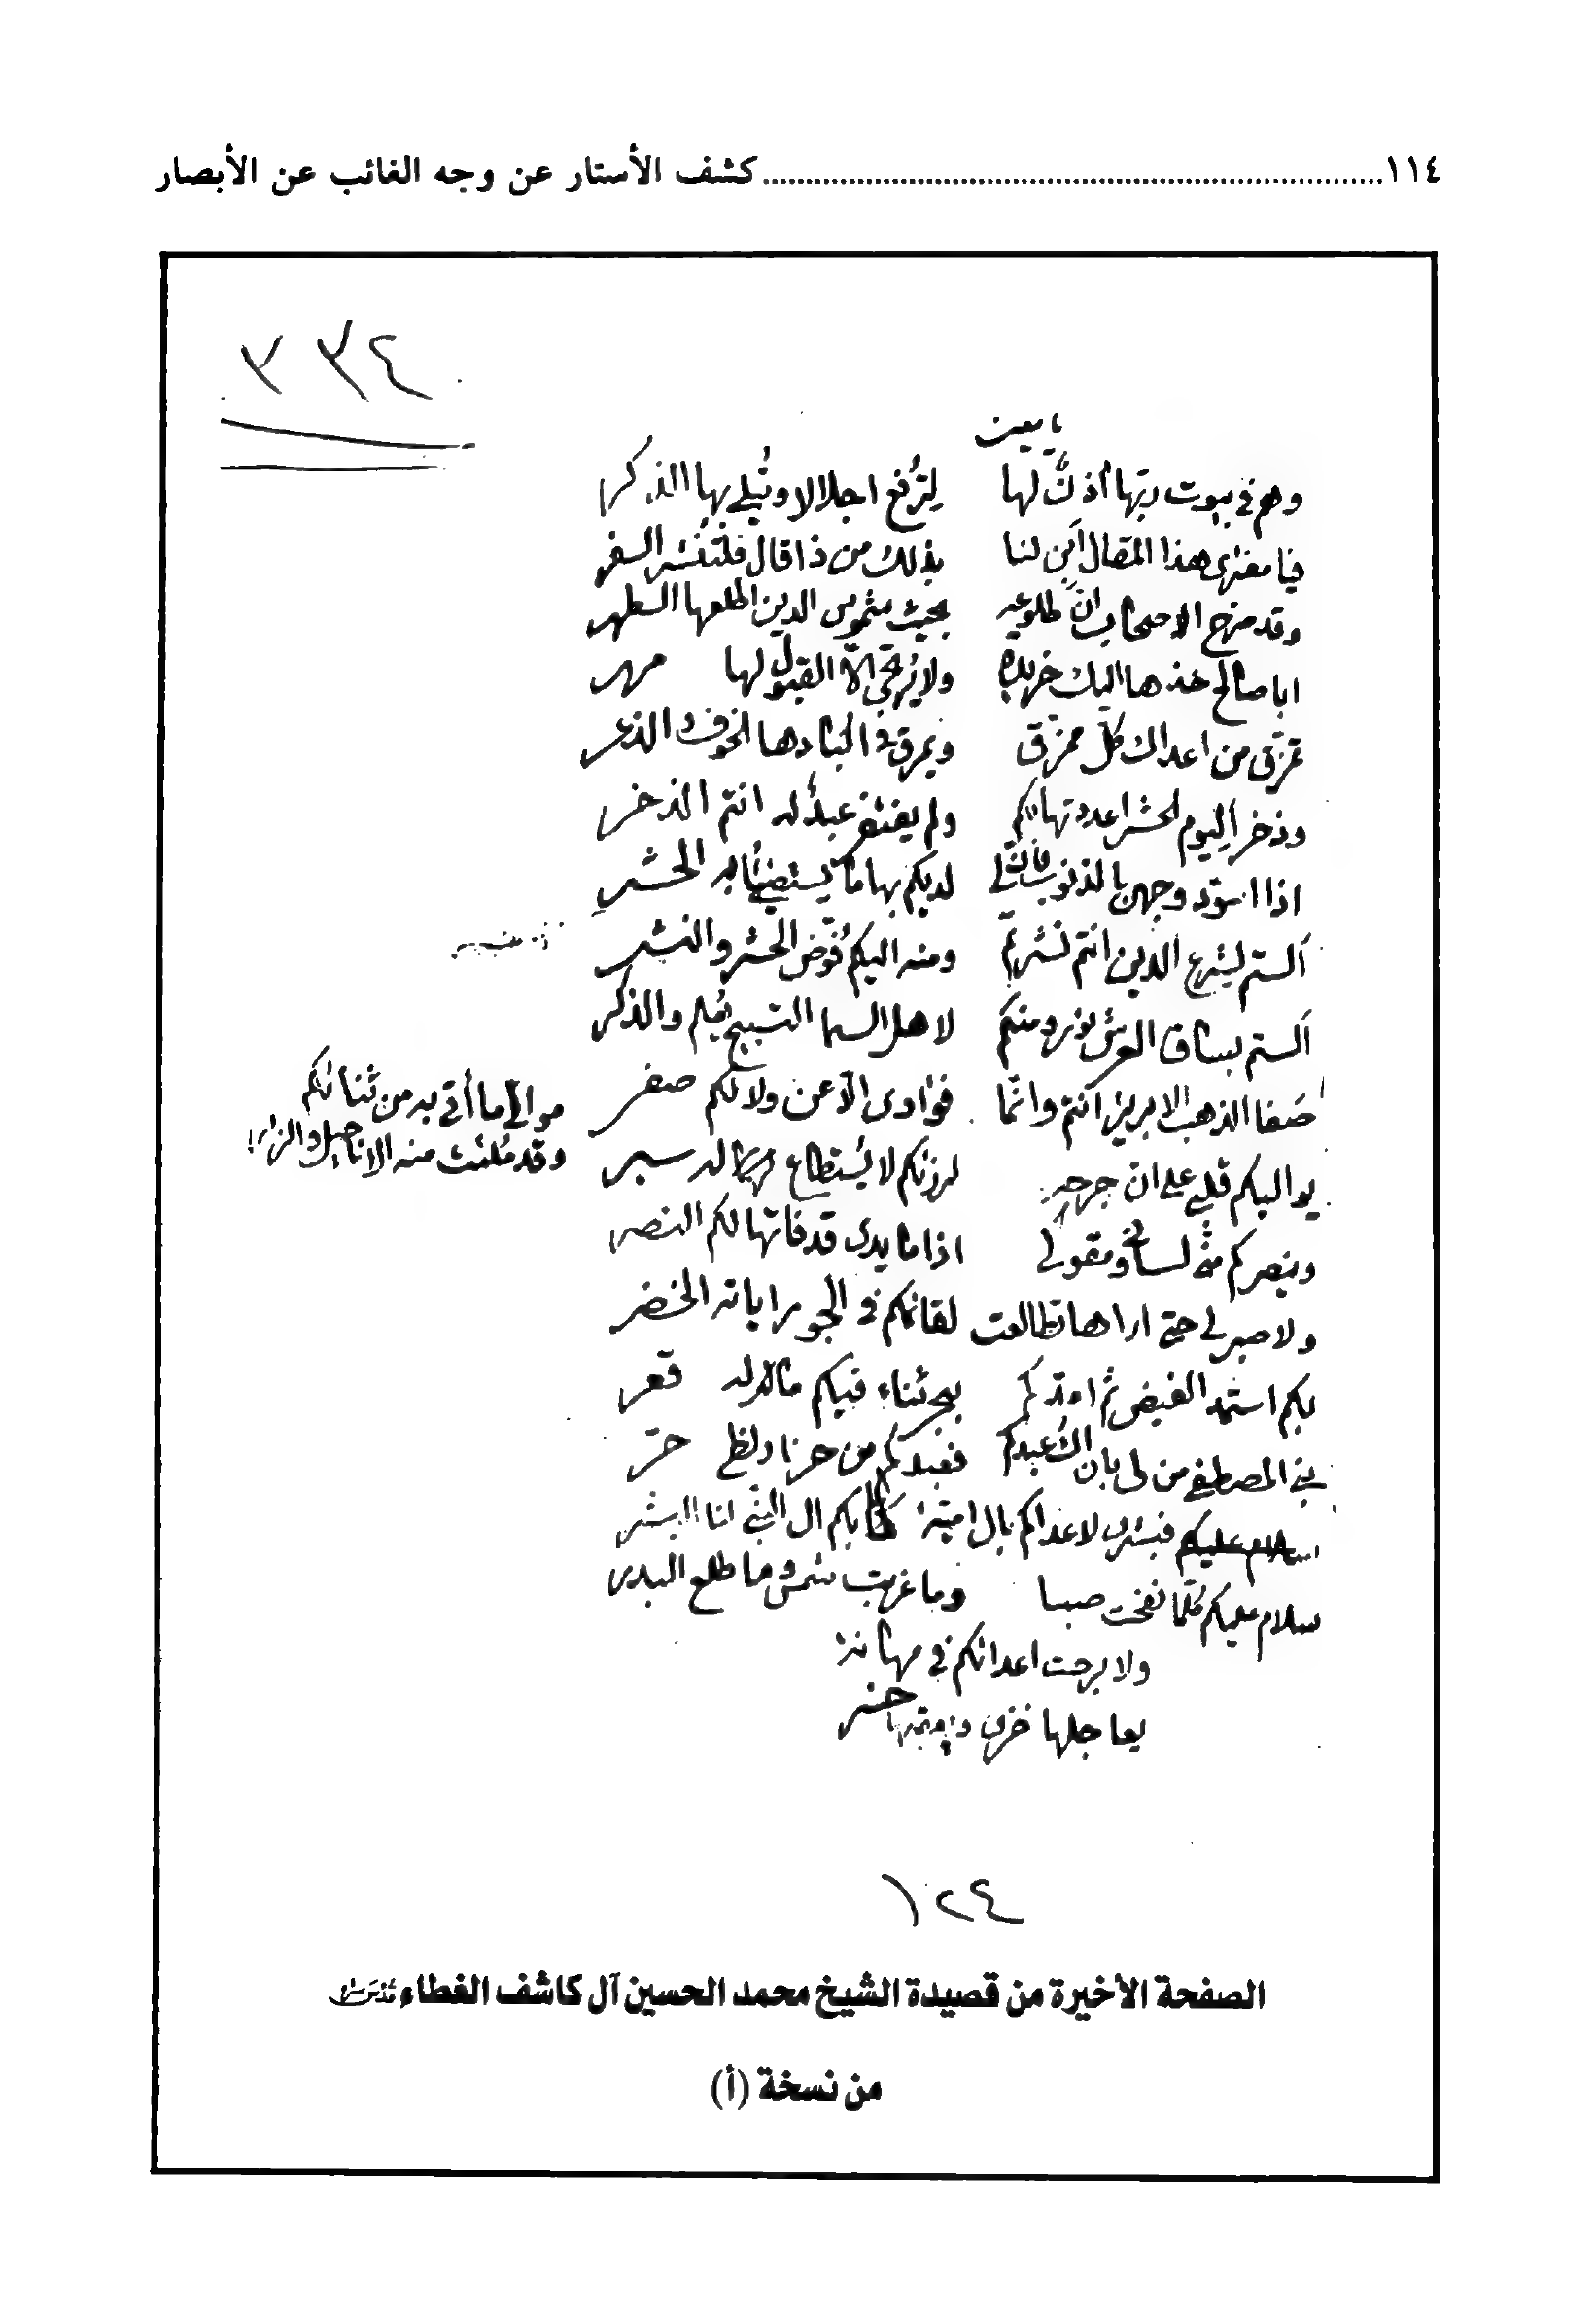 ١١٤ كشف الأستار عن وجه الغائب عن الأبصار
٣٣٤
وهم في بيوت ربها أذن لها لِتُرفع اجلالا وتُبلى بها الذكر
فيا مفترى هذا المقال أبن لنا بذلك من ذا قال فلتُنشر السفر
وقد صرح الاصحاب ان طلوعه بحيث شموس الدين اطلعها الطهر
ابا صالح خذها اليك خريدة ولا يُرتجى الا القبول لها مهر
تمزق من اعداك كل ممزق ويمرق في اكبادها الخوف الذعر
وذخر اليوم الحشر اعددتها لكم ولم يفتقر عبدٌ له انتم الذخر
اذا اسود وجهي بالذنوب فان لي لديكم بها ما يستضيئ به الحشر
ألستم لشرع الدين انتم نشرتم ومنه اليكم فُوّض الحشر والنشر
ألستم بساق العرش نورا ومنكم لاهل السما التسبيح يُعلم والذكر
صَفا الذهب الابريز انتم وانما فؤادى الا عن ولا لكم صفر
موالي ما أتى به من ثنائكم
وقد مُلئت منه الاناجيل والزبر
يواليكم قلبي على ان جرحه لرزئكم لا يُستطاع له سبر
وينصركم مني لساني ومقولي اذا ما يدى قد فاتها لكم النصر
ولا صبر لي حتى اراها تطالعت لقائمكم في الجو راياته الخضر
بكم استمد الفيض ثم امدكم ببحر ثناء فيكم ما له قعر
بني المصطفى من لى بان اك عبدكم فعبدكم من حر نار لظى حر
فبشرى لاعدائكم بال امية بكم ال النبي لنا البشر
سلام عليكم كلما نفحت صبا وما غربت شمس وما طلع البدر
ولا برحت اعدائكم في مهانة
يعاجلها خزى
١٢٤
الصفحة الأخيرة من قصيدة الشيخ محمد الحسين آل كاشف الغطاء
من نسخة (أ)